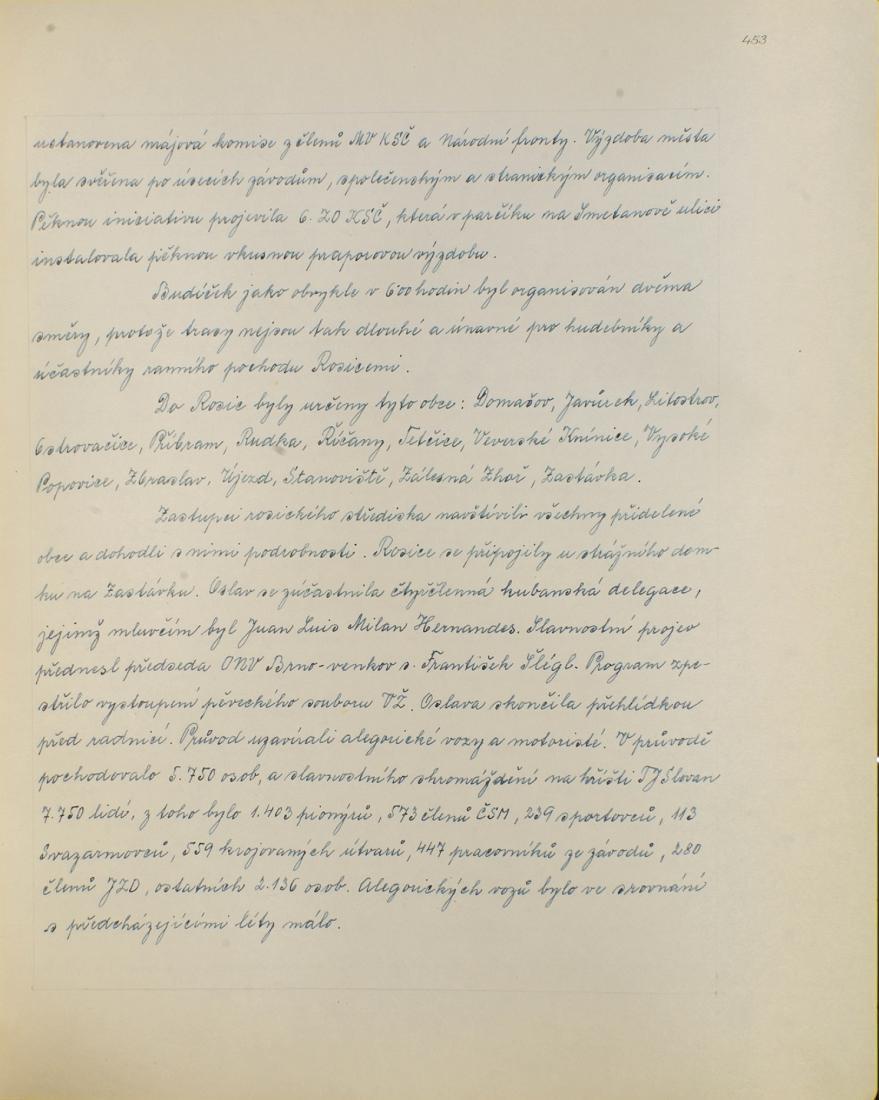 453
ustanovena májová komise z členů MV KSČ a Národní fronty. Výzdoba města
byla svěřena po úsecích závodům, společenským a stranickým organisacím.
Pěknou iniciativu projevila 6. ZO KSČ, která v parčíku na Smetanově ulici
instalovala pěknou vkusnou praporovou výzdobu.
Budíček jako obvykle v 6'00 hodin byl organisován dvěma
směry, protože trasy nejsou tak dlouhé a únavné pro hudebníky a
účastníky ranního pochodu Rosicemi.
Do Rosic byly určeny tyto obce: Domašov, Javůrek, Litostrov,
Ostrovačice, Příbram, Rudka, Říčany, Tetčice, Veverské Knínice, Vysoké
Popovice, Zbraslav, Újezd, Stanoviště, Zálesná Zhoř, Zastávka.
Zástupci rosického střediska navštívili všechny přidelené
obce a dohodli s nimi podrobnosti. Rosice se připojily u strážního dom-
ku na Zastávku. Oslav se zúčastnila čtyřčlenná kubanská delegace,
jejímž mluvčím byl Juan Luis Milan Hernandes. Slavnostní projev
přednesl předseda ONV Brno-venkov s. František Šlégl. Program zpe-
střilo vystoupení pěveckého souboru VŽ. Oslava skončila přehlídkou
před radnicí. Průvod uzavírali alegorické vozy a motoristé. V průvodě
pochodovalo 5.750 osob, a slavnostního shromáždění na hřišti TJ Slovan
7.750 lidí, z toho bylo 1.403 pionýrů, 573 členů ČSM, 239 sportovců, 113
Svazarmovců, 559 krojovaných útvarů, 447 pracovníků ze závodů, 280
členů JZD, ostatních 2.136 osob. Alegorických vozů bylo ve srovnání
s předcházejícími léty málo.